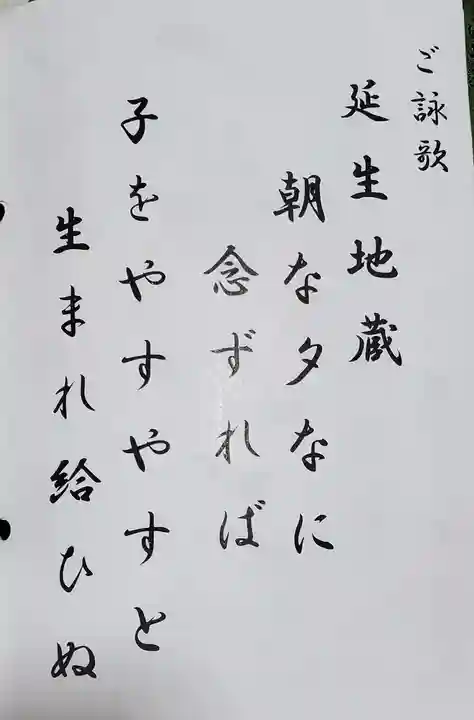 ご詠歌
延生地蔵
朝な夕なに
念ずれば
子をやすやすと
生まれ給ひぬ